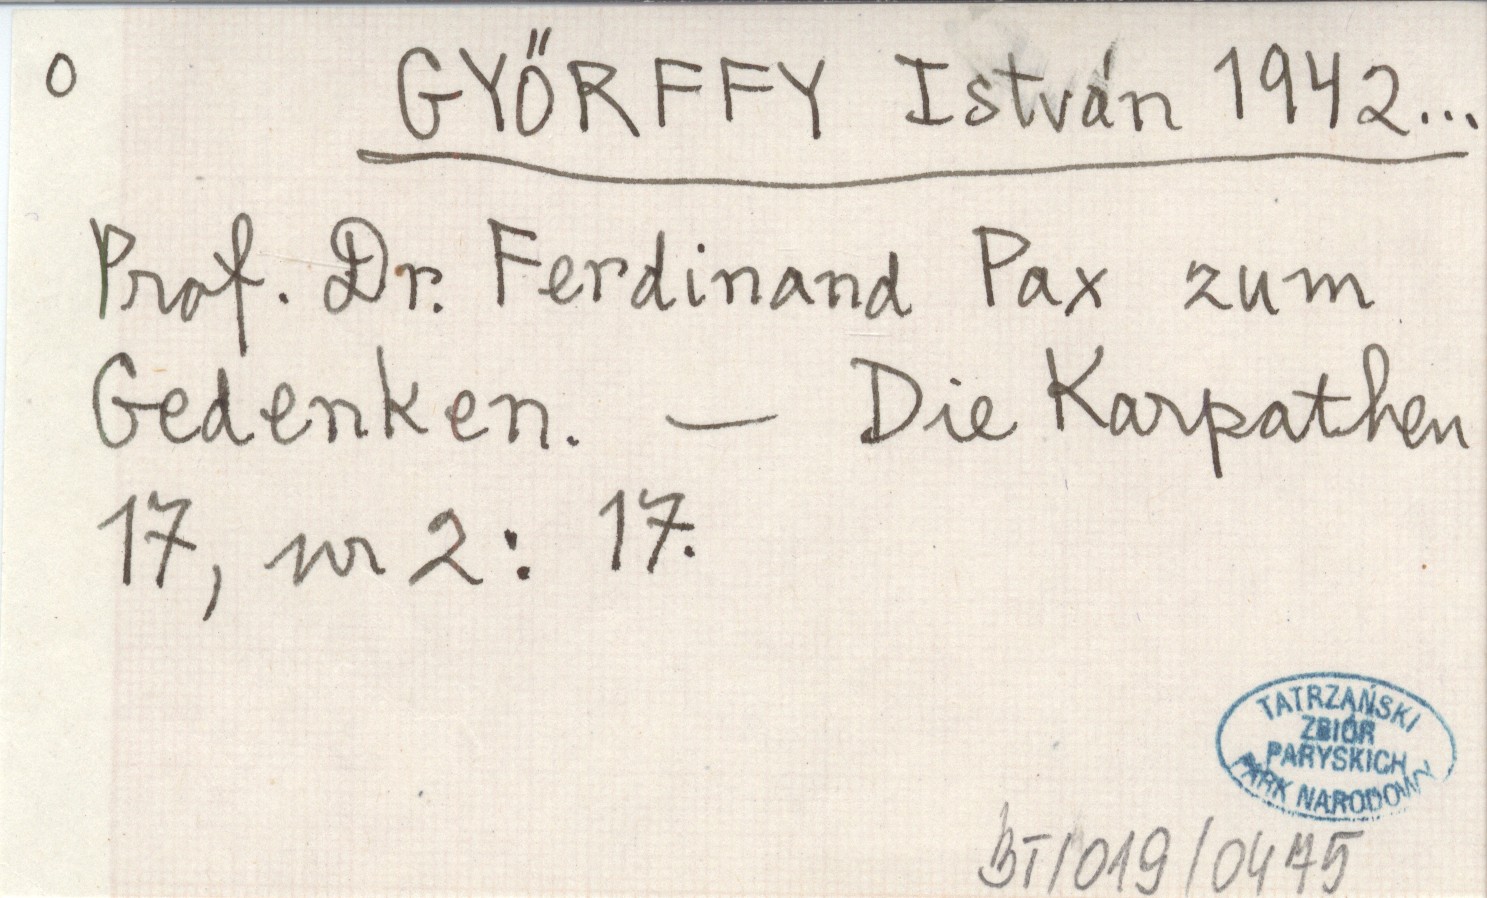 O GYŐRFFY István 1942...
Prof. Dr. Ferdinand Pax zum
Gedenken. — Die Karpathen
17, nr 2: 17.
TATRZAŃSKI
ZBIÓR
PARYSKICH
PARK NARODOWY
BT/019/0475